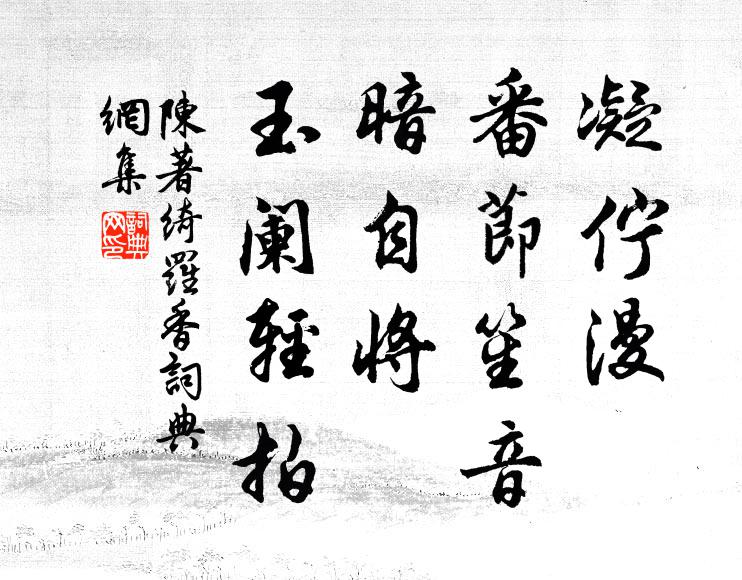 凝佇漫
番莭笙音
暗自将
玉阑輕拍
陳著綺羅香詞典
網集
詞典网印